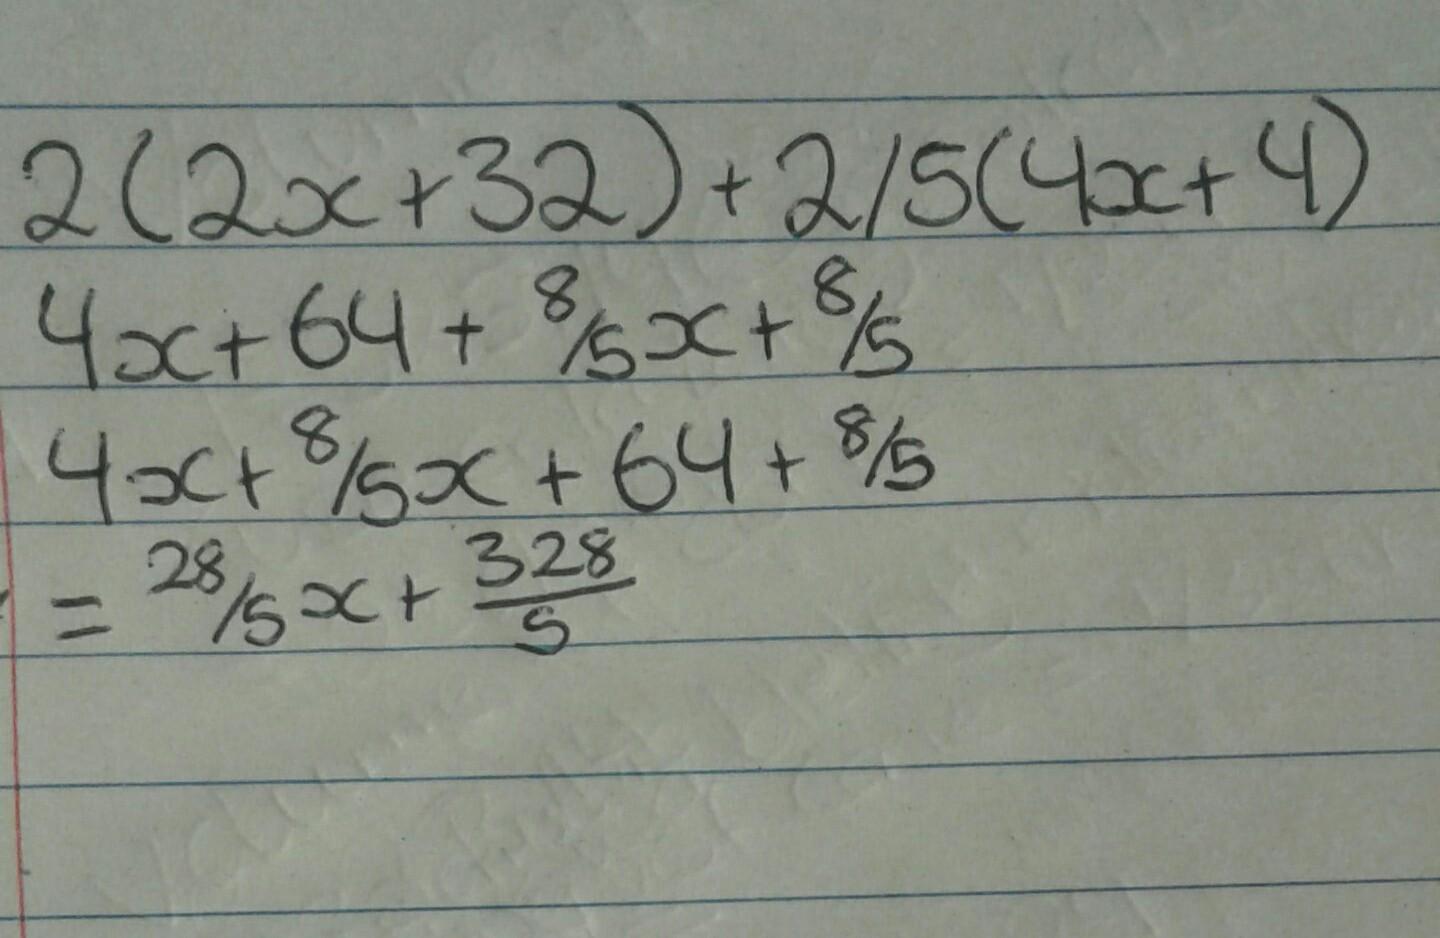 2(2x+32)+2/5(4x+4)
4x+64+8/5x+8/5
4x+8/5x+64+8/5
=28/5x+328/5